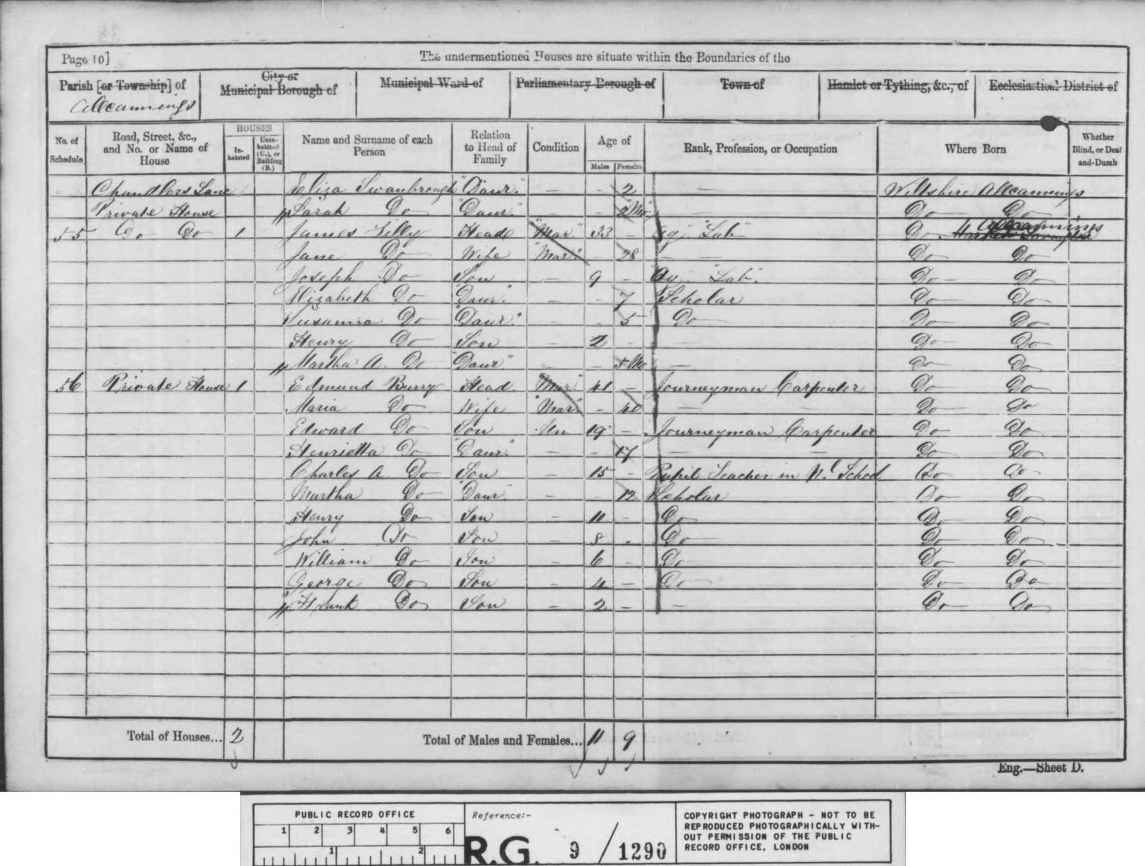 Page 10] The undermentioned Houses are situate within the Boundaries of the
Parish [or Township] of City or Municipal Borough of Municipal Ward of Parliamentary Borough of Town of Hamlet or Tything, &c., of Ecclesiastical District of
Allcannings
No. of Schedule Road, Street, &c., and No. or Name of House HOUSES Inhabited Uninhabited (U.), or Building (B.) Name and Surname of each Person Relation to Head of Family Condition Age of Males Females Rank, Profession, or Occupation Where Born Whether Blind, or Deaf and-Dumb
Chandlers Lane Eliza Swanbrough Daur - 2 - Wiltshire Allcannings
Private House Sarah Do Daur Mo Do Do
55 Do Do 1 James Lilly Head Mar 33 - Ag Lab Do Allcannings
Jane Do Wife Mar - 28 Do Do
Joseph Do Son - 9 - Ag Lab Do Do
Elizabeth Do Daur - 7 Scholar Do Do
Susanna Do Daur - 5 Do Do Do
Henry Do Son - 2 - Do Do
Martha A. Do Daur 5 Mo Do Do
56 Private House 1 Edmund Burry Head Mar 41 - Journeyman Carpenter Do Do
Maria Do Wife Mar - 40 Do Do
Edward Do Son Un 19 - Journeyman Carpenter Do Do
Henrietta Do Daur 17 - - Do Do
Charles A. Do Son - 15 - Pupil Teacher in Nl School Do Do
Martha Do Daur - 12 Scholar Do Do
Henry Do Son - 11 - Do Do Do
John Do Son - 8 - Do Do Do
William Do Son - 6 - Do Do Do
George Do Son - 4 - Do Do Do
Frank Do Son - 2 - - Do Do
Total of Houses... 2 Total of Males and Females... 11 9
Eng.—Sheet D.
PUBLIC RECORD OFFICE Reference:- COPYRIGHT PHOTOGRAPH - NOT TO BE
1 2 3 4 5 6 REPRODUCED PHOTOGRAPHICALLY WITH-
1 2 R.G. 9 / 1290 OUT PERMISSION OF THE PUBLIC
RECORD OFFICE, LONDON